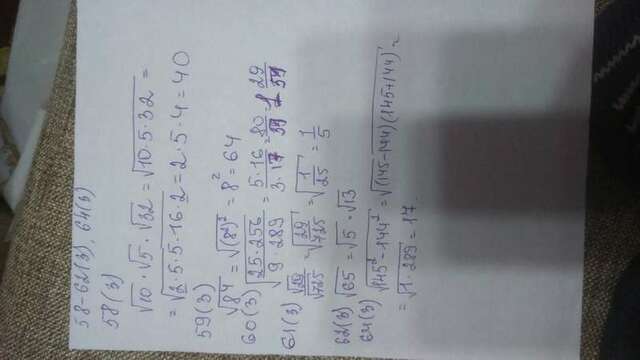 58-62(3), 64(3)
58(3)
√10 · √5 · √32 = √(10·5·32) =
= √(2·5·5·16·2) = 2·5·4 = 40
59(3)
√8⁴ = √(8²)² = 8² = 64
60(3) √(25·256/9·289) = 5·16/3·17 = 80/51 = 1 29/51
61(3) √29/√725 = √(29/725) = √(1/25) = 1/5
62(3) √65 = √5 · √13
64(3) √(145² - 144²) = √((145-144)(145+144)) =
= √(1·289) = 17.